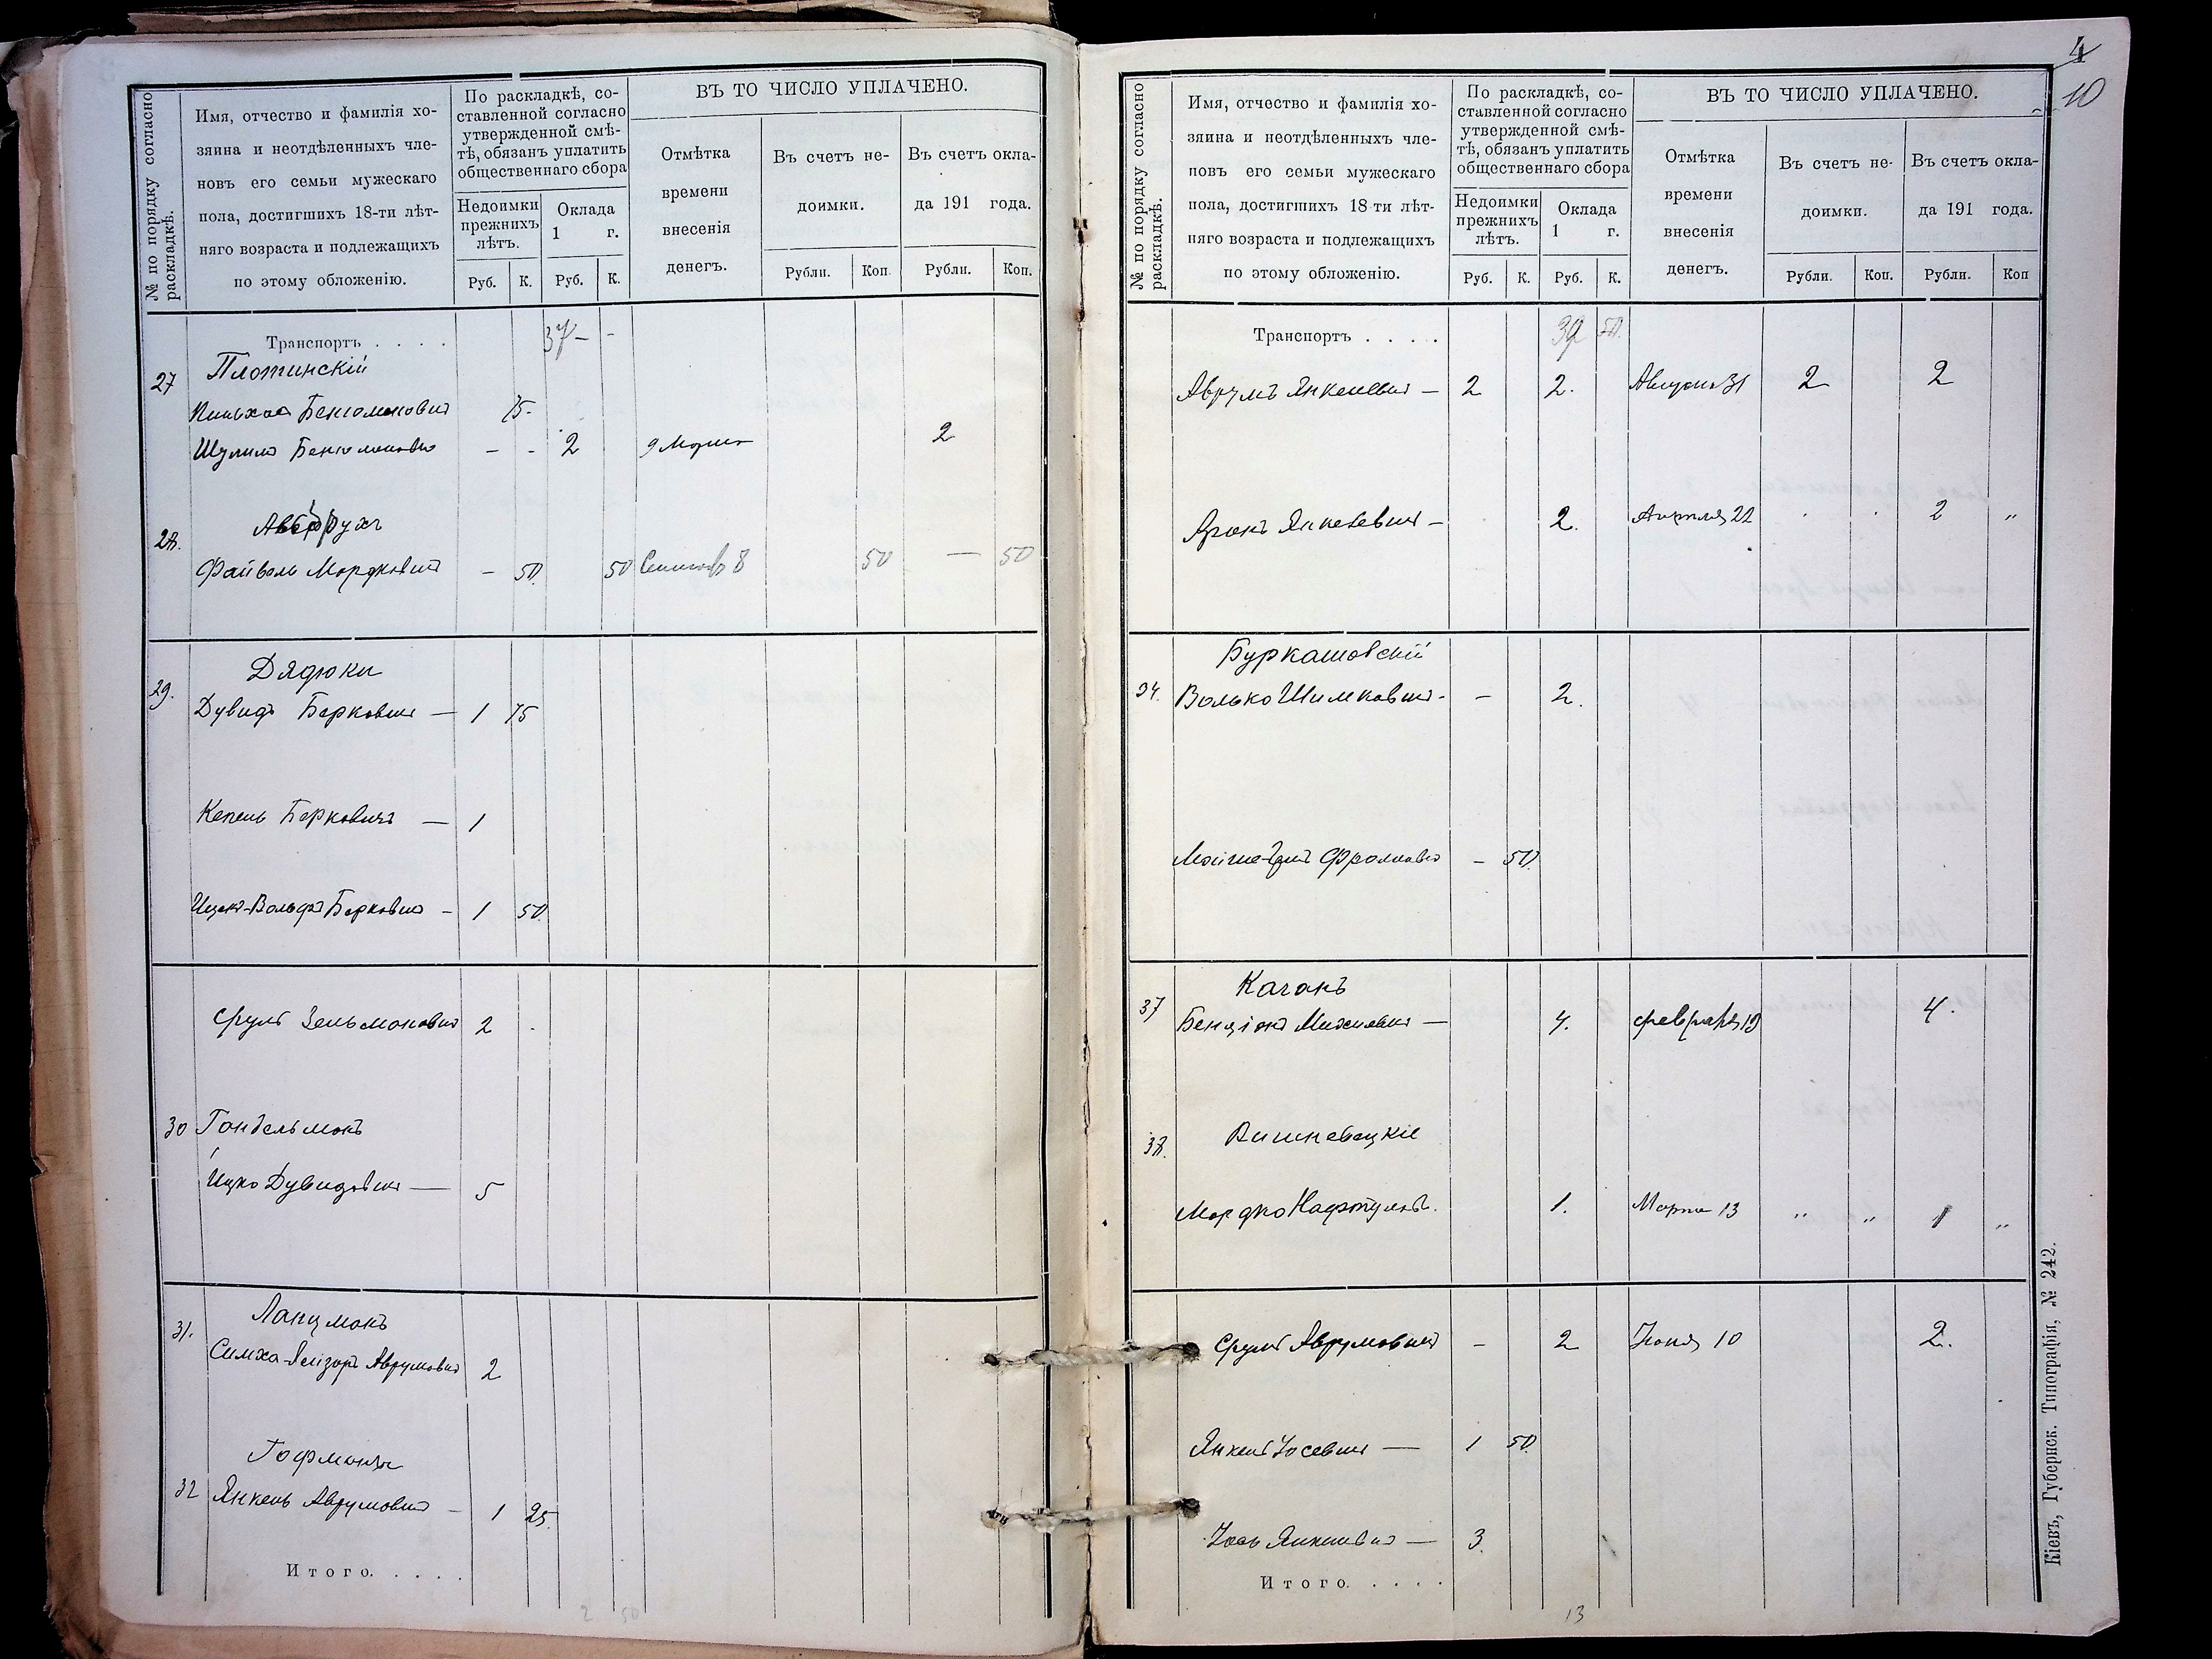 № по порядку согласно раскладкѣ.
Имя, отчество и фамилія хо-
зяина и неотдѣленныхъ чле-
новъ его семьи мужескаго
пола, достигшихъ 18-ти лѣт-
няго возраста и подлежащихъ
по этому обложенію.
По раскладкѣ, со-
ставленной согласно
утвержденной смѣ-
тѣ, обязанъ уплатить
общественнаго сбора
Недоимки
прежнихъ
лѣтъ.
Оклада
1 г.
Руб. К. Руб. К.
ВЪ ТО ЧИСЛО УПЛАЧЕНО.
Отмѣтка
времени
внесенія
денегъ.
Въ счетъ не-
доимки.
Въ счетъ окла-
да 191 года.
Рубли. Коп. Рубли. Коп.
Транспортъ . . . . 37 - -
27 Плотинскій
Пиньхас Бенюминович 75 -
Шулим Бенюминович - - 2 9 Марта 2
28.
Файвель Мордкович - 50. 50 50 — 50
29. Дядюки
Дувидъ Беркович — 1 75
Кепель Берковичъ — 1
Ицек-Вольф Беркович — 1 50.
Срулъ Зельманович 2 .
30 Гандельманъ
Ицко Дувидович — 5
31. Ланцманъ
Симха-Леізоръ Аврумович 2
Гофманы
32 Янкель Аврумович — 1 25.
Итого. . . . .
2 50
4
10
№ по порядку согласно раскладкѣ.
Имя, отчество и фамилія хо-
зяина и неотдѣленныхъ чле-
новъ его семьи мужескаго
пола, достигшихъ 18-ти лѣт-
няго возраста и подлежащихъ
по этому обложенію.
По раскладкѣ, со-
ставленной согласно
утвержденной смѣ-
тѣ, обязанъ уплатить
общественнаго сбора
Недоимки
прежнихъ
лѣтъ.
Оклада
1 г.
Руб. К. Руб. К.
ВЪ ТО ЧИСЛО УПЛАЧЕНО.
Отмѣтка
времени
внесенія
денегъ.
Въ счетъ не-
доимки.
Въ счетъ окла-
да 191 года.
Рубли. Коп. Рубли. Коп
Транспортъ . . . . 39 50.
Аврумъ Янкелевич — 2 2. Августа 31 2 2
Аронъ Янкелевич — 2. Апрѣля 22 . . 2 „
Буркашовскій
34. Волько Шимкович - — 2.
Фроимович - 50.
37 Каганъ
Бенціон Михилевич — 4. февраля 19 4.
38. Вишневецкіе
Мордко Нафтулов. 1. Марта 13 „ „ 1 „
Срулъ Аврумович - 2 Іюня 10 2.
Янкель Іосевич — 1 50.
Іось Янкелевич — 3.
Итого. . . . .
13
Кіевъ, Губернск. Типографія, № 242.